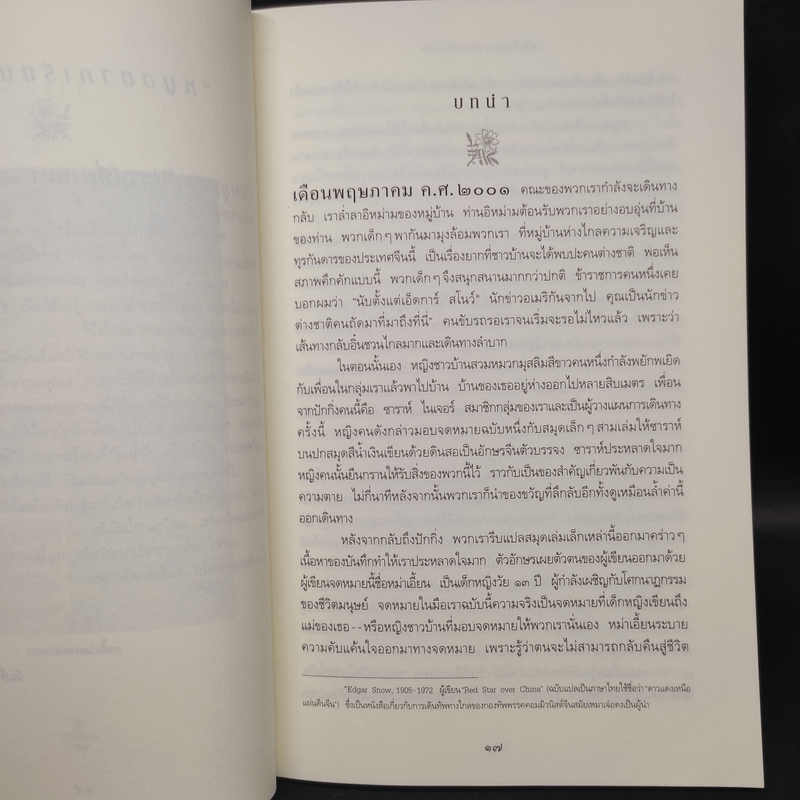 บทนำ
เดือนพฤษภาคม ค.ศ.๒๐๐๑ คณะของพวกเรากำลังจะเดินทาง
กลับ เราล่ำลาอิหม่ามของหมู่บ้าน ท่านอิหม่ามต้อนรับพวกเราอย่างอบอุ่นที่บ้าน
ของท่าน พวกเด็กๆ พากันมามุงล้อมพวกเรา ที่หมู่บ้านห่างไกลความเจริญและ
ทุรกันดารของประเทศจีนนี้ เป็นเรื่องยากที่ชาวบ้านจะได้พบปะคนต่างชาติ พอเห็น
สภาพคึกคักแบบนี้ พวกเด็กๆ จึงสนุกสนานมากกว่าปกติ ข้าราชการคนหนึ่งเคย
บอกผมว่า "นับตั้งแต่เอ็ดการ์ สโนว์* นักข่าวอเมริกันจากไป คุณเป็นนักข่าว
ต่างชาติคนถัดมาที่มาถึงที่นี่" คนขับรถรอเราจนเริ่มจะรอไม่ไหวแล้ว เพราะว่า
เส้นทางกลับอิ๋นชวนไกลมากและเดินทางลำบาก
ในตอนนั้นเอง หญิงชาวบ้านสวมหมวกมุสลิมสีขาวคนหนึ่งกำลังพยักพเยิด
กับเพื่อนในกลุ่มเราแล้วพาไปบ้าน บ้านของเธออยู่ห่างออกไปหลายสิบเมตร เพื่อน
จากปักกิ่งคนนี้คือ ซาราห์ ไนเจอร์ สมาชิกกลุ่มของเราและเป็นผู้วางแผนการเดินทาง
ครั้งนี้ หญิงคนดังกล่าวมอบจดหมายฉบับหนึ่งกับสมุดเล็กๆ สามเล่มให้ซาราห์
บนปกสมุดสีน้ำเงินเขียนด้วยดินสอเป็นอักษรจีนตัวบรรจง ซาราห์ประหลาดใจมาก
หญิงคนนั้นยืนกรานให้รับสิ่งของพวกนี้ไว้ ราวกับเป็นของสำคัญเกี่ยวพันกับความเป็น
ความตาย ไม่กี่นาทีหลังจากนั้นพวกเราก็นำของขวัญที่ลึกลับอีกทั้งดูเหมือนล้ำค่านี้
ออกเดินทาง
หลังจากกลับถึงปักกิ่ง พวกเรารีบแปลสมุดเล่มเล็กเหล่านี้ออกมาคร่าวๆ
เนื้อหาของบันทึกทำให้เราประหลาดใจมาก ตัวอักษรเผยตัวตนของผู้เขียนออกมาด้วย
ผู้เขียนจดหมายนี้ชื่อหม่าเอี้ยน เป็นเด็กหญิงวัย ๑๓ ปี ผู้กำลังเผชิญกับโศกนาฏกรรม
ของชีวิตมนุษย์ จดหมายในมือเราฉบับนี้ความจริงเป็นจดหมายที่เด็กหญิงเขียนถึง
แม่ของเธอ--หรือหญิงชาวบ้านที่มอบจดหมายให้พวกเรานั่นเอง หม่าเอี้ยนระบาย
ความคับแค้นใจออกมาทางจดหมาย เพราะรู้ว่าตนจะไม่สามารถกลับคืนสู่ชีวิต
*Edgar Snow, 1905-1972 ผู้เขียน "Red Star over China" (ฉบับแปลเป็นภาษาไทยใช้ชื่อว่า "ดาวแดงเหนือ
แผ่นดินจีน") ซึ่งเป็นหนังสือเกี่ยวกับการเดินทัพทางไกลของกองทัพพรรคคอมมิวนิสต์จีนสมัยเหมาเจ๋อตงเป็นผู้นำ
๑๗